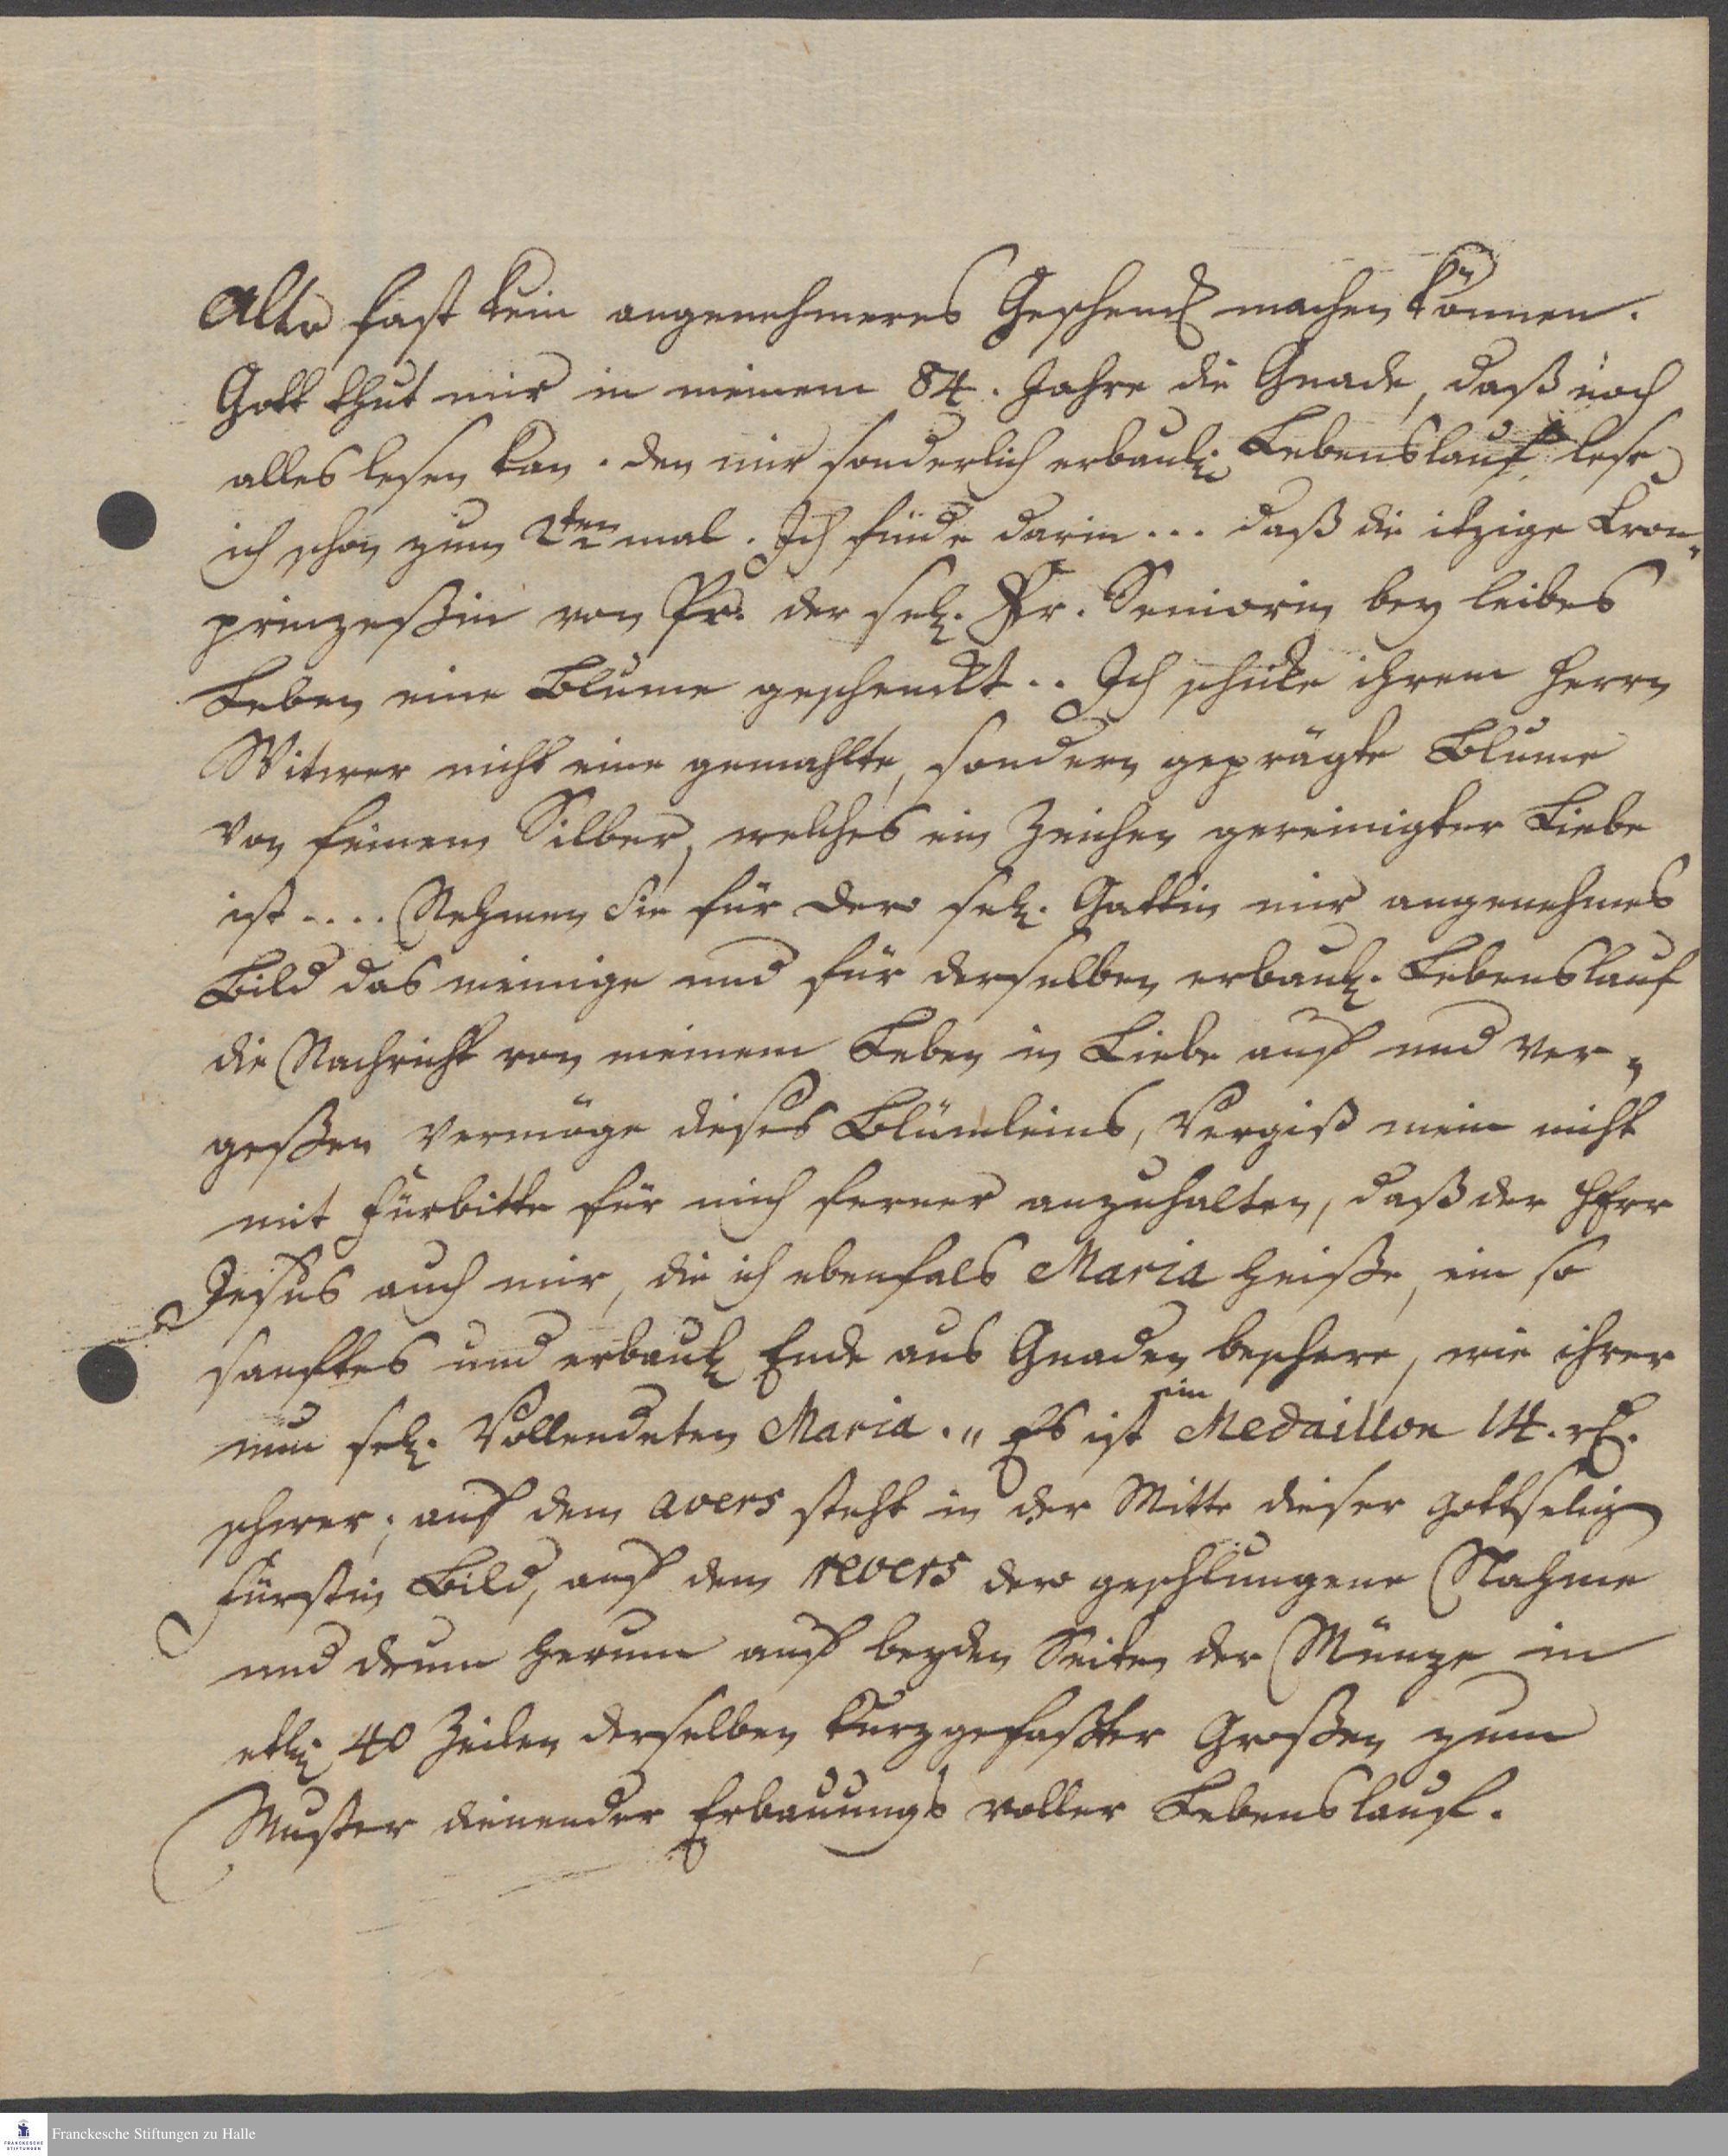 Alte fast kein angenehmeres Geschenck machen können.
Gott thut mir in meinem 84. Jahre die Gnade, daß noch
alles lesen kan. den mir sonderlich erbaul. Lebenslauf lese
ich schon zum 2ten mal. Ich finde darin... daß die itzige Cron-
prinzeßin von Pr. der sel. Fr. Seniorin bey leibes
Leben eine Blume geschenckt.. Ich schicke ihrem Herrn
Witwer nicht eine gemahlte, sondern geprägte Blume
von feinem Silber, welches ein Zeichen gereinigter Liebe
ist.... Nehmen Sie für dero sel. Gattin mir angenehmes
Bild das meinige und für derselben erbaul. Lebenslauf
die Nachricht von meinem Leben in Liebe auf und ver-
geßen vermöge dieses Blümleins, Vergiß mein nicht
mit Fürbitte für mich ferner anzuhalten, daß der HErr
Jesus auch mir, die ich ebenfals Maria heiße, ein so
sanftes und erbaul. Ende aus Gnaden beschere, wie ihrer
nun sel. Vollendeten Maria.„ Es ist ein Medaillon 14. rl.
schwer; auf dem avers steht in der Mitte dieser gottselig
Fürstin Bild, auf dem revers dero geschlungene Nahme
und drum herum auf beyden Seiten der Münze in
etl. 40 Zeilen derselben kurzgefaßter Großen zum
Muster dienender Erbauungs voller Lebenslauf.
Franckesche Stiftungen zu Halle